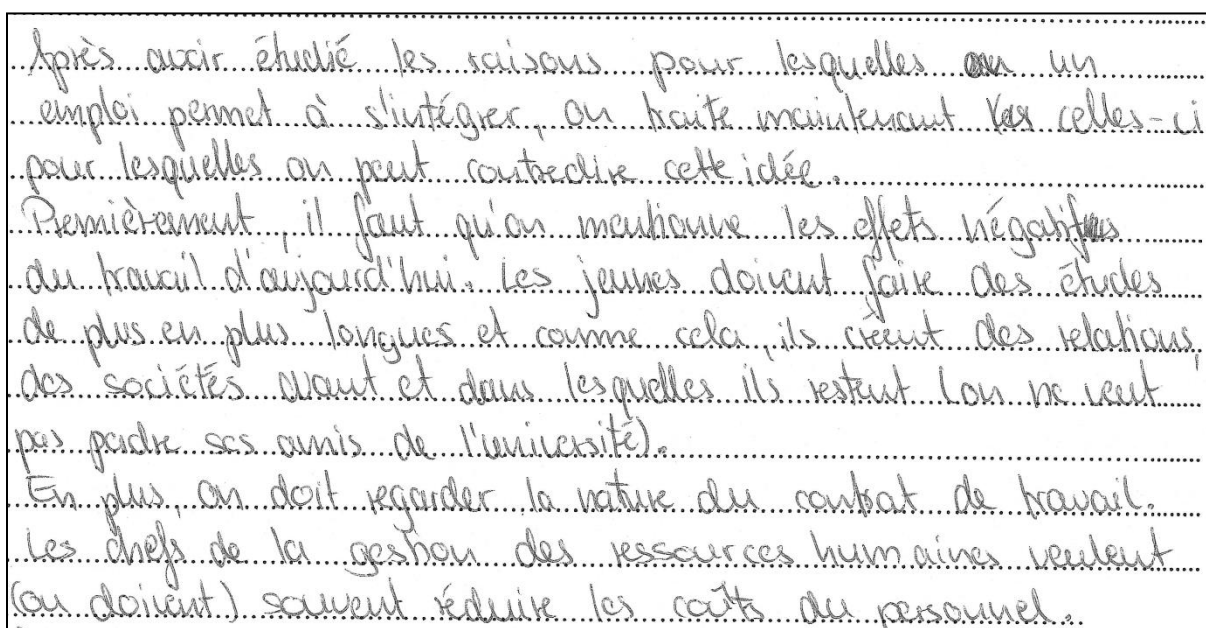 Après avoir étudié les raisons pour lesquelles un
emploi permet à s'intégrer, on traite maintenant celles-ci
pour lesquelles on peut contredire cette idée.
Premièrement, il faut qu'on mentionne les effets négatifs
du travail d'aujourd'hui. Les jeunes doivent faire des études
de plus en plus longues et comme cela, ils créent des relations,
des sociétés avant et dans lesquelles ils restent (on ne veut
pas perdre ses amis de l'université).
En plus, on doit regarder la nature du contrat de travail.
Les chefs de la gestion des ressources humaines veulent
(ou doivent) souvent réduire les coûts du personnel.